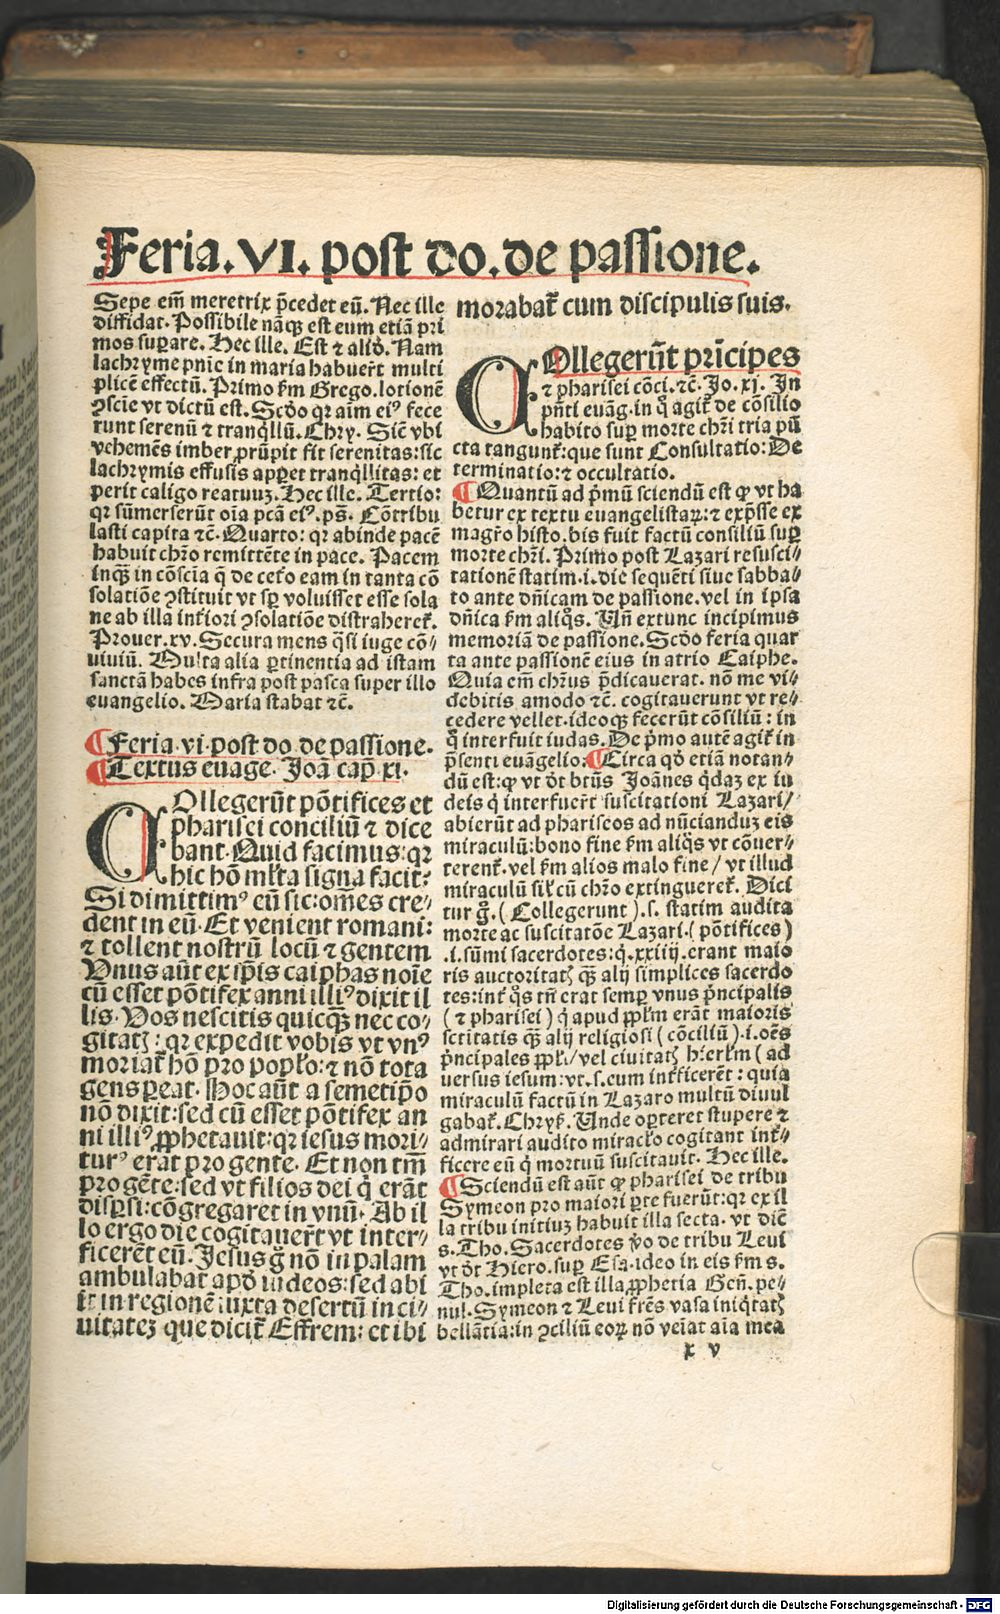 Feria. VI. post do. de passione.
Sepe em̄ meretrix p̄cedet eū. Nec ille
diffidat. Possibile nāqꝫ est eum etiā pri
mos suꝑare. Hec ille. Est ⁊ aliď. Nam
lachryme pn̄ie in maria habuer̄t multi
plicē effectū. Primo ẜm Grego. lotionē
ꝯscīe vt dictū est. Scďo qꝛ aīam eiꝰ fece
runt serenū ⁊ tranq̇llū. Chry. Sic̄ vbi
vehemēs imber ꝓrūpit fit serenitas: sic
lachrymis effusis apꝑet tranq̇llitas: et
perit caligo reatuuꝫ. Hec ille. Tertio:
qꝛ sūmerserūt oīa pctā eiꝰ. ps̄. Cōtribu
lasti capita ⁊c̄. Quarto: qꝛ abinde pacē
habuit chr̄o remittēte in pace. Pacem
inqꝫ̄ in cōscīa q̄ de cet̕o eam in tanta cō
solatiōe ꝯstituit vt sꝑ voluisset esse sola
ne ab illa int̕iori ꝯsolatiōe distraheret̕.
Prouer. xv. Secura mens q̇si iuge cō⸗
uiuiū. Multa alia ꝑtinentia ad istam
sanctā habes infra post pasca super illo
euangelio. Maria stabat ⁊c̄.
¶ Feria. vi. post do. de passione.
¶ Textus euāge. Joā. cap̄. xi.
COllegerūt pōtifices et
pharisei conciliū ⁊ dice
bant. Quid facimus: qꝛ
hic hō ml̕ta signa facit:
Si dimittimꝰ eū sic: om̄es cre⸗
dent in eū. Et venient romani:
⁊ tollent nostrū locū ⁊ gentem
Vnus aūt ex ip̄is caiphas noīe
cū esset pōtifex anni illiꝰ dixit il
lis. Vos nescitis quicqꝫ̄ nec co⸗
gitatꝭ: qꝛ expedit vobis vt vnꝰ
moriat̕ hō pro popl̕o: ⁊ nō tota
gens ꝑeat. Hoc aūt a semetip̄o
nō dixit: sed cū esset pōtifex an
ni illiꝰ ꝓphetauit: qꝛ iesus mori⸗
turꝰ erat pro gente. Et non tm̄
pro gēte: sed vt filios dei q̇ erāt
disꝑsi: cōgregaret in vnū. Ab il
lo ergo die cogitauer̄t vt inter⸗
ficerēt eū. Jesus g̊ nō in palam
ambulabat apď iudeos: sed abi
it in regionē iuxta desertū in ci⸗
uitateꝫ que dicit̕ Effrem: et ibi
morabat̕ cum discipulis suis.
COllegerūt prīncipes
⁊ pharisei cōci. ⁊c̄. Jo. xi. In
pn̄ti euāg. in q̊ agit̕ de cōsilio
habito suꝑ morte chr̄i tria pū
cta tangunt̕: que sunt Consultatio: De
terminatio: ⁊ occultatio.
¶ Quantū ad p̄mū sciendū est ꝙ vt ha
betur ex textu euangelistaꝝ: ⁊ exp̄sse ex
magr̄o histo. bis fuit factū consiliū suꝑ
morte chr̄i. Primo post Lazari resusci⸗
tationē statim. i. die sequēti siue sabba⸗
to ante dn̄icam de passione. vel in ipsa
dn̄ica ẜm aliq̊s. Vn̄ extunc incipimus
memoriā de passione. Scďo feria quar
ta ante passionē eius in atrio Caiphe.
Quia em̄ chr̄us p̄dicauerat. nō me vi⸗
debitis amodo ⁊c̄. cogitauerunt vt re⸗
cedere vellet. ideoqꝫ fecerūt cōsiliū: in
q̊ interfuit iudas. De p̄mo autē agit̕ in
p̄senti euāgelio. ¶ Circa qď etiā notan⸗
dū est: ꝙ vt dt̄ btūs Joānes q̇daꝫ ex iu
deis q̇ interfuer̄t suscitationi Lazari/
abierūt ad phariseos ad nūcianduꝫ eis
miraculū: bono fine ẜm aliq̊s vt cōuer⸗
terent̕. vel ẜm alios malo fine/ vt illud
miraculū sil̕ cū chr̄o extingueret̕. Dici
tur g̊. (Collegerunt). s. statim audita
morte ac suscitatōe Lazari. (pōtifices)
.i. sūmi sacerdotes: q̇. xxiiij. erant maio
ris auctoritatꝭ qꝫ̄ alij simplices sacerdo
tes: int̕ q̊s tn̄ erat semꝑ vnus p̄ncipalis
(⁊ pharisei) q̇ apud ppl̕m erāt maioris
sctītatis qꝫ̄ alij religiosi (cōciliū). i. oēs
p̄ncipales ppl̕i/ vel ciuitatꝭ hierl̕m (ad
uersus iesum: vt. s. eum int̕ficerēt: quia
miraculū factū in Lazaro multū diuul
gabat̕. Chryẜ. Unde oꝑteret stupere ⁊
admirari audito miracl̕o cogitant int̕⸗
ficere eū q̇ mortuū suscitauit. Hec ille.
¶ Sciendū est aūt ꝙ pharisei de tribu
Symeon pro maiori ꝑte fuerūt: qꝛ ex il
la tribu initiuꝫ habuit illa secta. vt dic̄
s. Tho. Sacerdotes v̊o de tribu Leui
vt dt̄ Hiero. suꝑ Esa. ideo in eis ẜm s.
Tho. impleta est illa ꝓphetia Gen̄. pe⸗
nul. Symeon ⁊ Leui fr̄es vasa iniq̇tatꝭ
bellātia: in ꝯciliū eoꝝ nō veīat aīa mea
x v
Digitalisierung gefördert durch die Deutsche Forschungsgemeinschaft - DFG